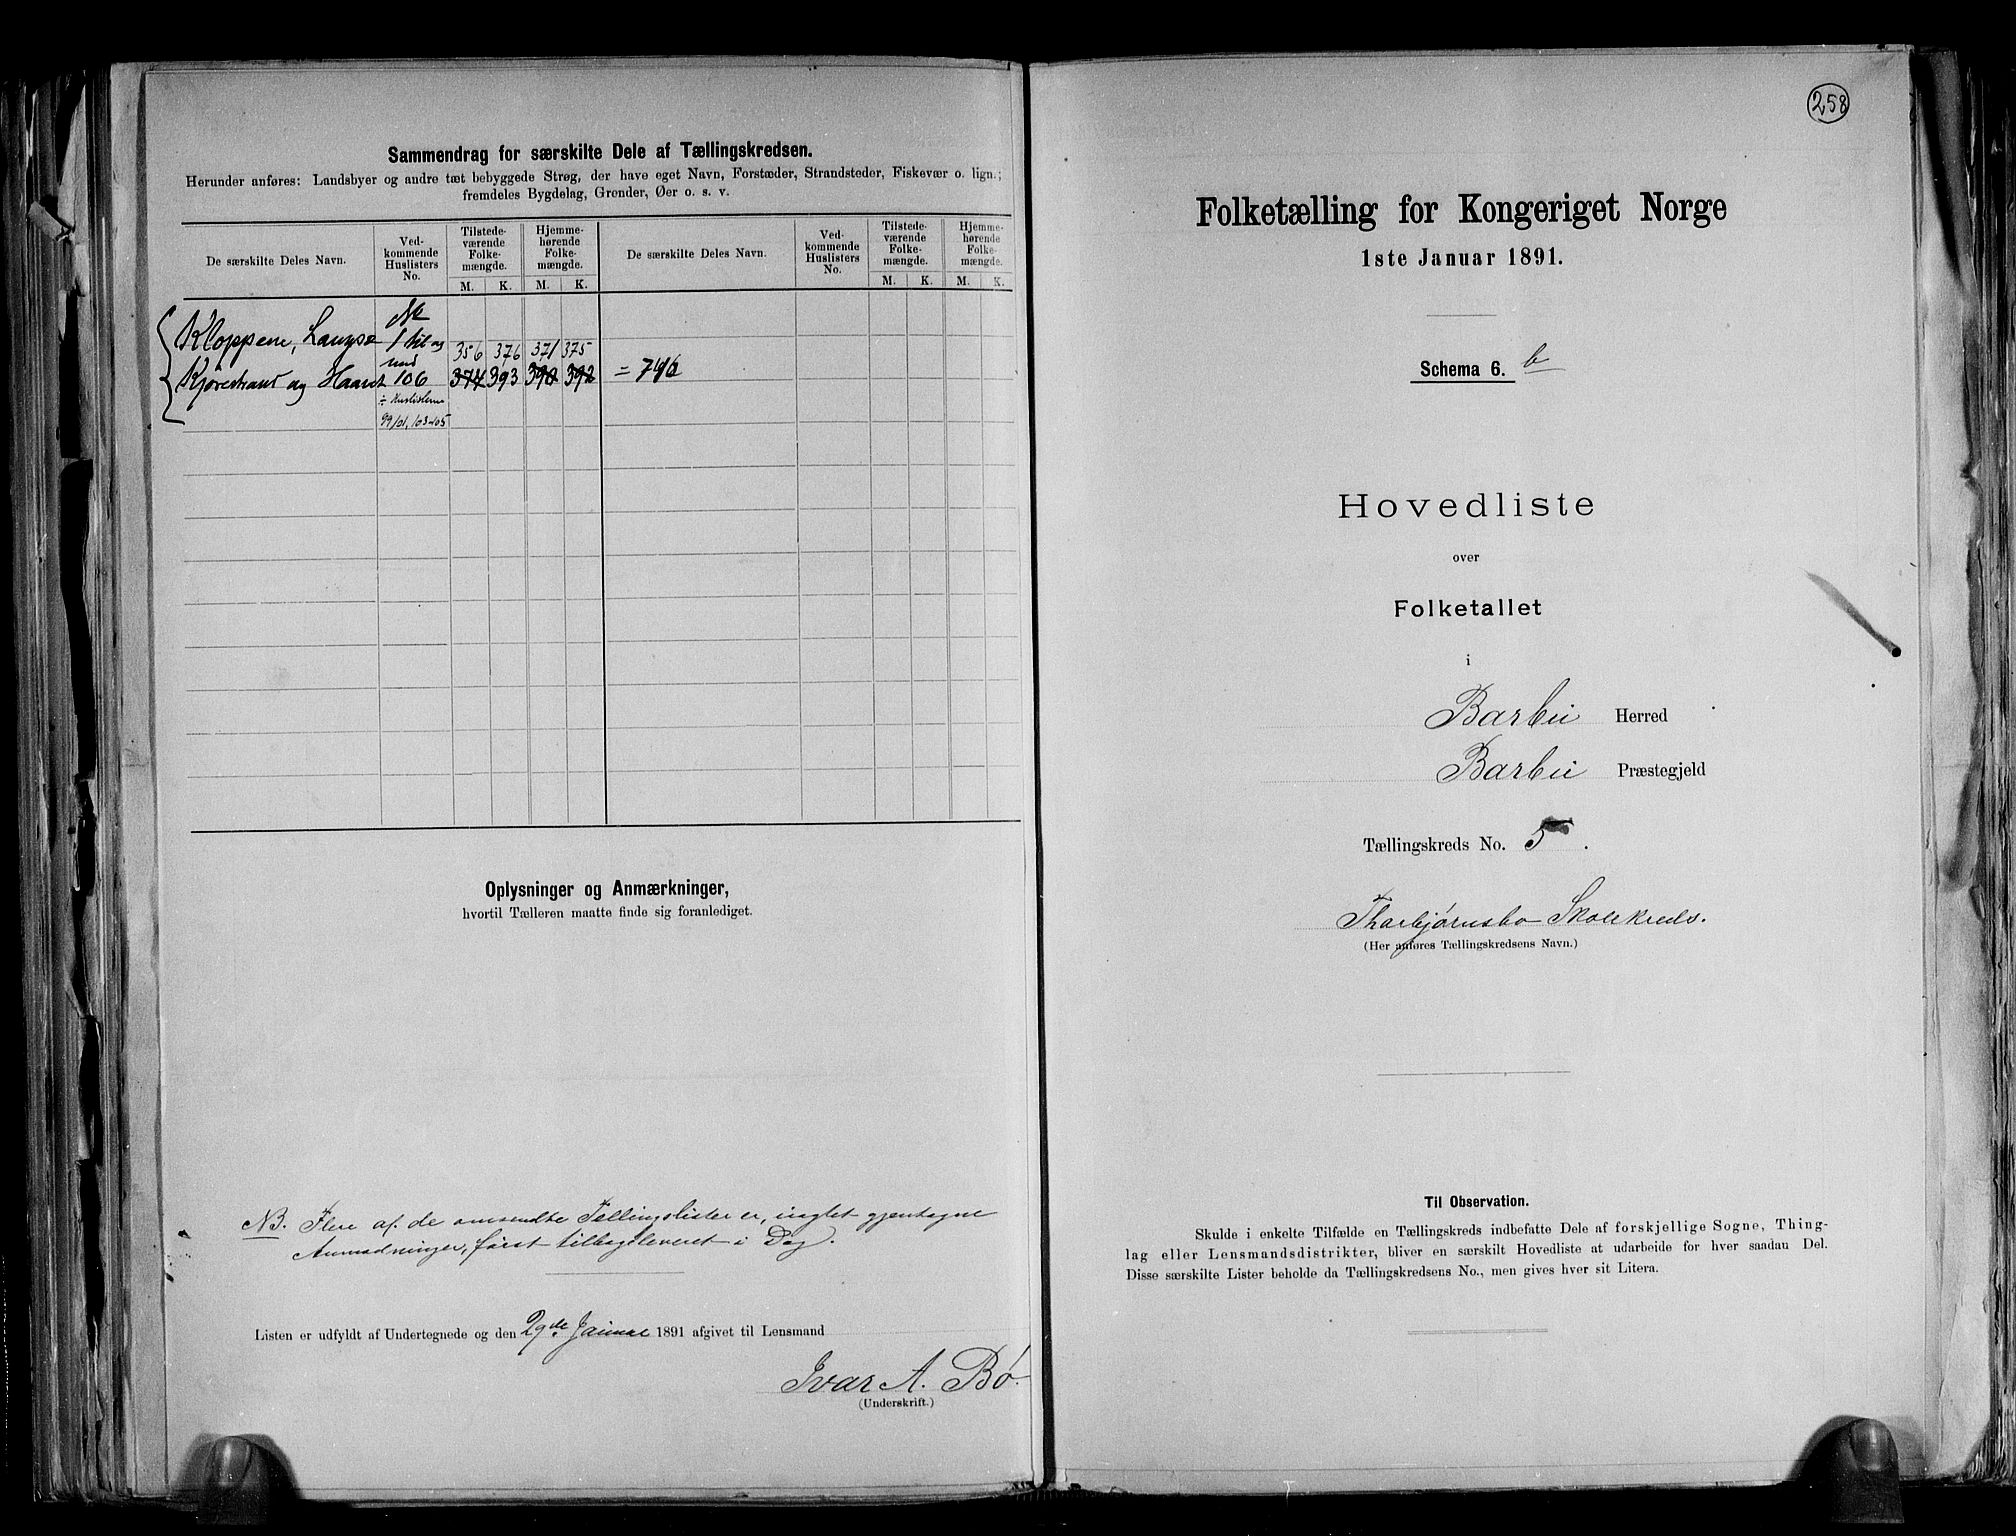 Sammendrag for særskilte Dele af Tællingskredsen.
Herunder anføres: Landsbyer og andre tæt bebyggede Strøg, der have eget Navn, Forstæder, Strandsteder, Fiskevær o. lign.;
fremdeles Bygdelag, Grender, Øer o. s. v.
De særskilte Deles Navn.
Ved-
kommende
Huslisters
No.
Tilstede-
værende
Folke-
mængde.
Hjemme-
hørende
Folke-
mængde.
De særskilte Deles Navn.
Ved-
kommende
Huslisters
No.
Tilstede-
værende
Folke-
mængde.
Hjemme-
hørende
Folke-
mængde.
M. K. M. K. M. K. M. K.
No
Kloppene, Langsæ 1 til og 356 376 371 375
med
Kjørestrand og 106 374 393 390 392 = 746
÷ Huslisterne
99/101, 103-105
Oplysninger og Anmærkninger,
hvortil Tælleren maatte finde sig foranlediget.
NB. Flere af de omsendte Tællingslister er, uagtet gjentagne
Anmodninger, først tilbageleveret i Dag.
Listen er udfyldt af Undertegnede og den 29de Januar 1891 afgivet til Lensmand
Ivar A. Bø.
(Underskrift.)
258
Folketælling for Kongeriget Norge
1ste Januar 1891.
Schema 6. b
Hovedliste
over
Folketallet
i
Barbu Herred
Barbu Præstegjeld
Tællingskreds No. 5.
Thorbjørnsbo Skolekreds.
(Her anføres Tællingskredsens Navn.)
Til Observation.
Skulde i enkelte Tilfælde en Tællingskreds indbefatte Dele af forskjellige Sogne, Thing-
lag eller Lensmandsdistrikter, bliver en særskilt Hovedliste at udarbeide for hver saadan Del.
Disse særskilte Lister beholde da Tællingskredsens No., men gives hver sit Litera.